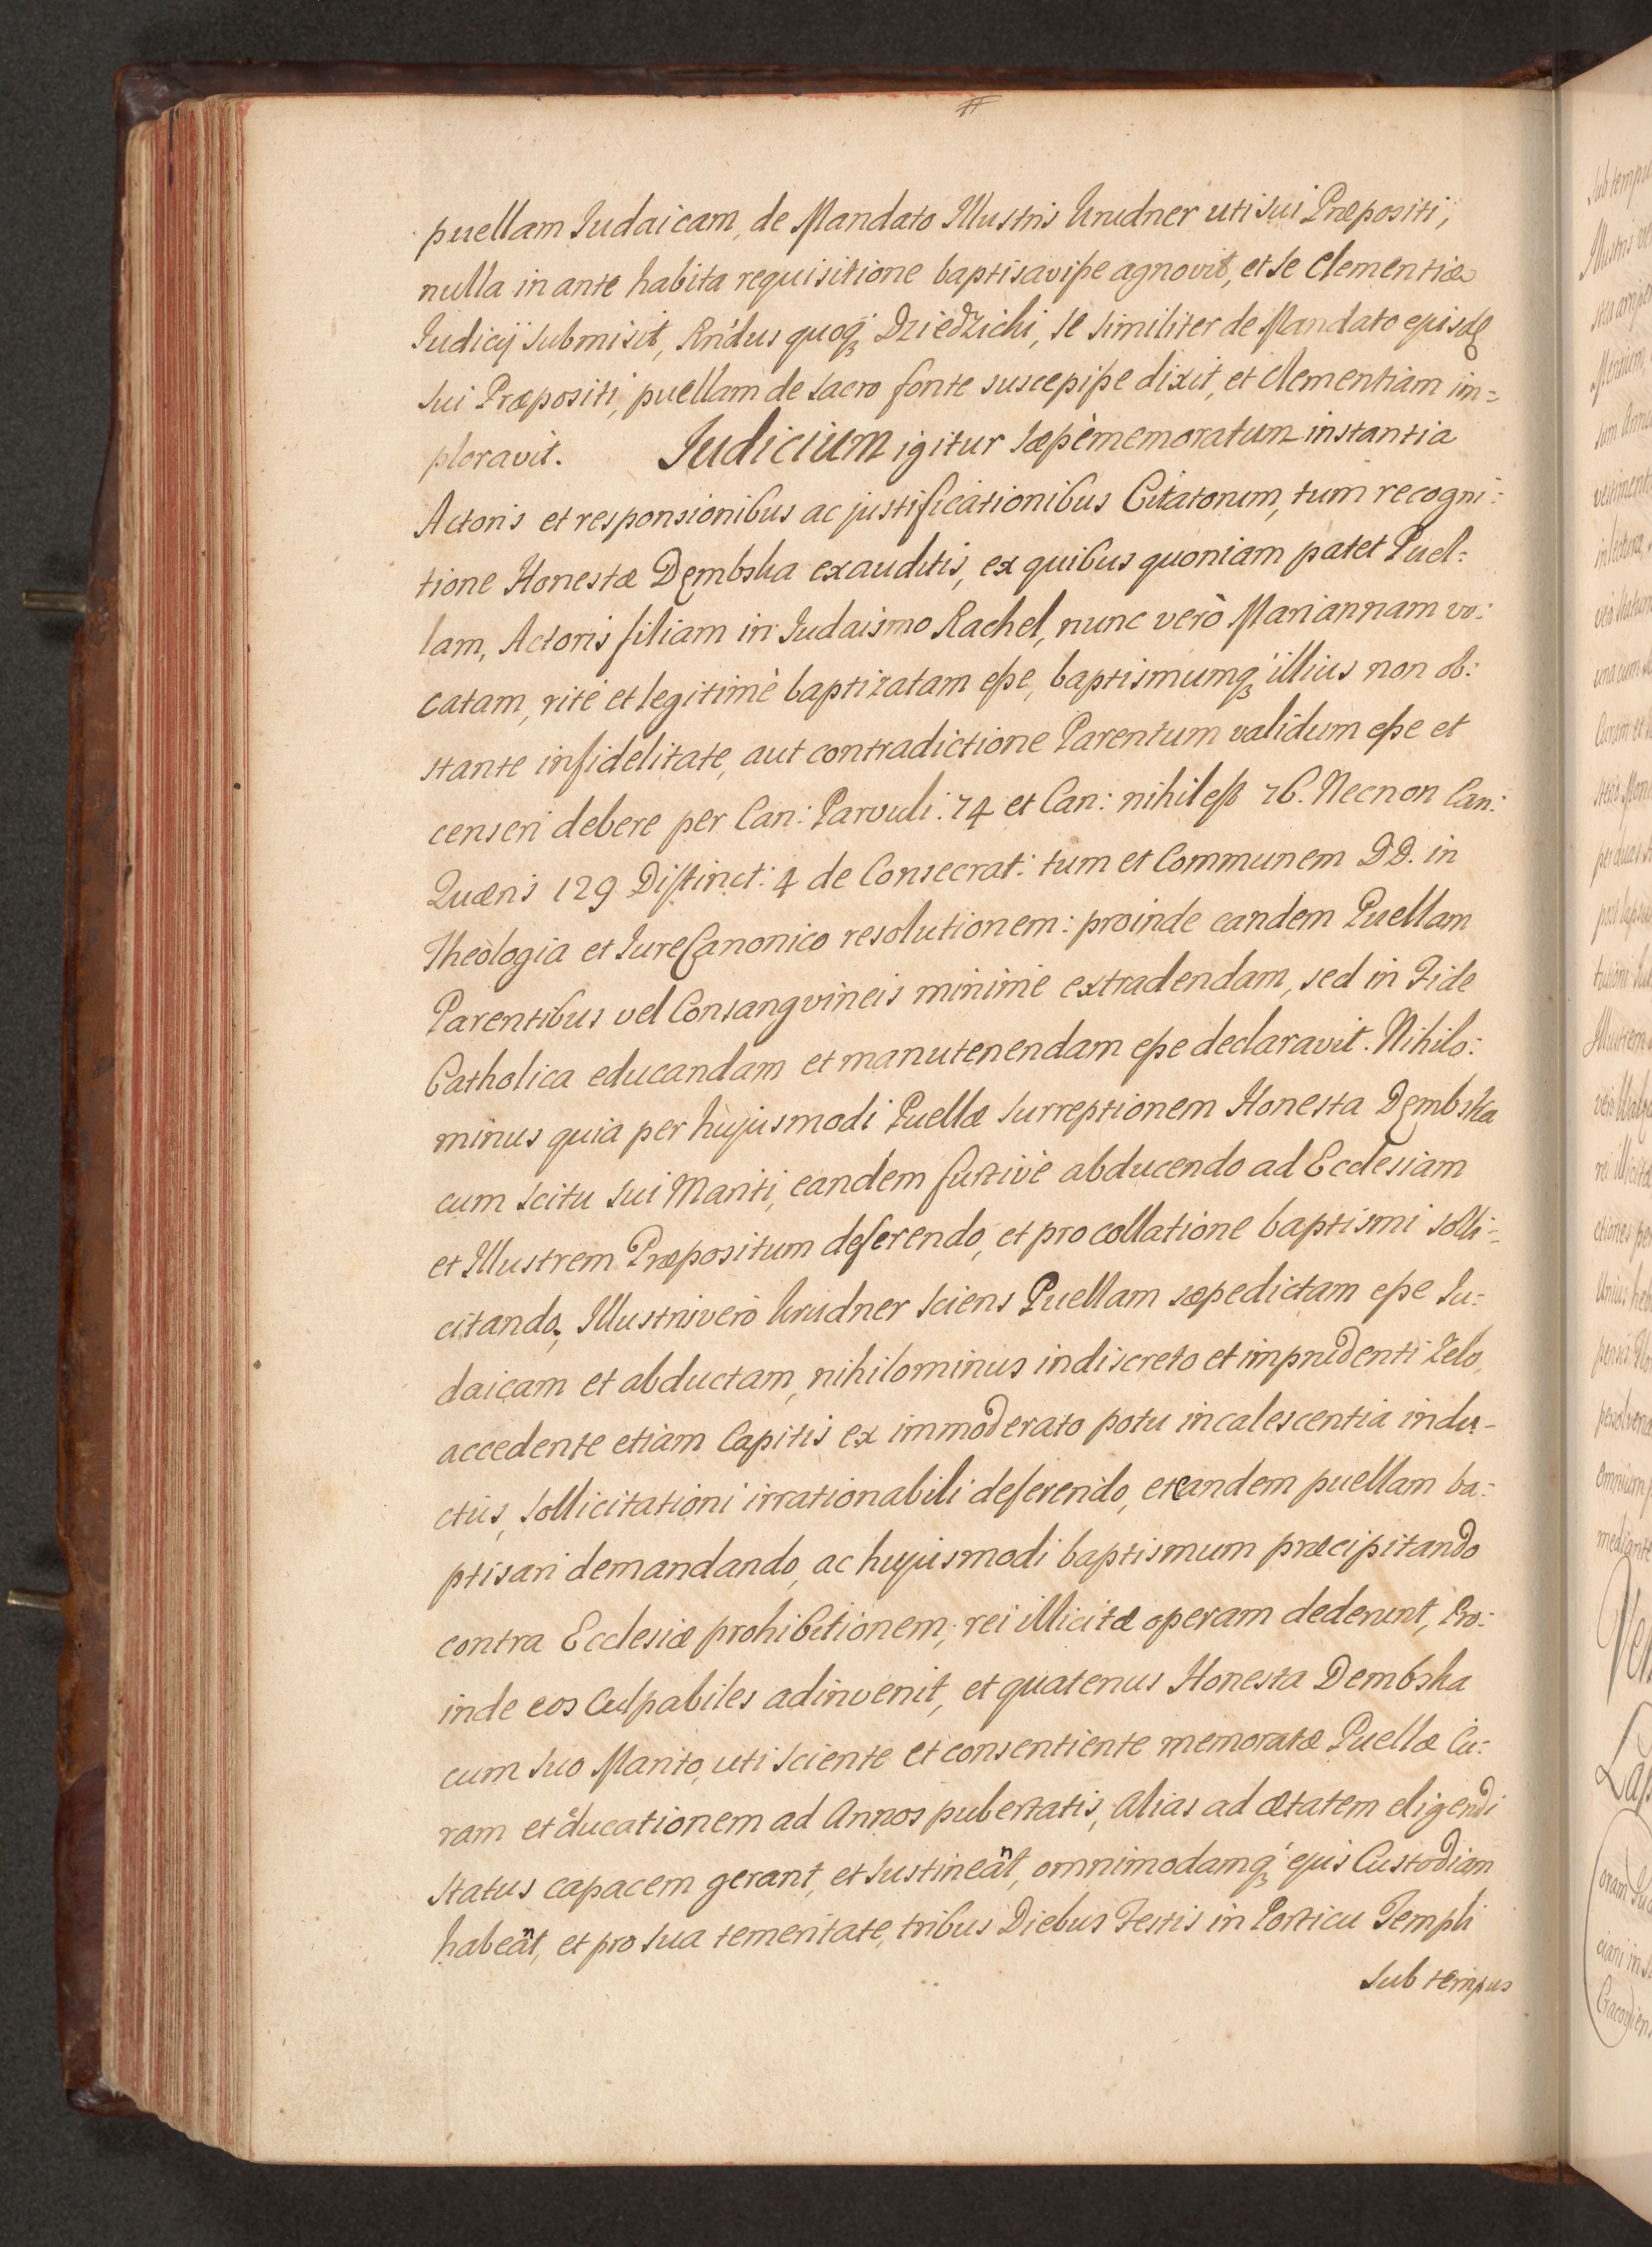 puellam Judaicam, de Mandato Illustris Krudner uti sui Præpositi,
nulla in ante habita requisitione baptisavisse agnovit, et se Clementiæ
Judicij submisit, Rńdus quoq; Dziedzichi, se similiter de Mandato ejusd
sui Præpositi, puellam de sacro fonte suscepisse dixit, et Clementiam im=
ploravit. Judicium igitur sæpèmemoratum instantia
Actoris et responsionibus ac justificationibus Citatorum, tum recogni:
tione Honestæ Dembska exauditis, ex quibus quoniam patet Puel:
lam, Actoris filiam in Judaismo Rachel, nunc verò Mariannam vo:
catam, ritè et legitimè baptizatam esse, baptismumq; illius non ob:
stante infidelitate, aut contradictione Parentum validum esse et
censeri debere per Can: Parvuli. 74 et Can: nihil est 76. Necnon Can:
Quæris 129 Distinct: 4 de Consecrat: tum et Communem DD. in
Theologia et Jure Canonico resolutionem: proinde eandem Puellam
Parentibus vel Consangvineis minimè extradendam, sed in Fide
Catholica educandam et manutenendam esse declaravit. Nihilo:
minus quia per hujusmodi Puellæ surreptionem Honesta Dembska
cum scitu sui Mariti, eandem furtivè abducendo ad Ecclesiam
et Illustrem Præpositum deferendo, et pro collatione baptismi solli=
citando, Illustris verò Krudner sciens Puellam sæpedictam esse Ju:
daicam et abductam, nihilominus indiscreto et imprudenti Zelo,
accedente etiam Capitis ex immoderato potu incalescentia indu-
ctus, sollicitationi irrationabili deferendo, et eandem puellam ba:
ptisari demandando, ac hujusmodi baptismum præcipitando
contra Ecclesiæ prohibitionem, rei illicitæ operam dederunt, Pro:
inde eos Culpabiles adinvenit, et quatenus Honesta Dembska
cum suo Marito, uti sciente et consentiente memoratæ Puellæ Cu:
ram et educationem ad Annos pubertatis, alias ad ætatem eligendi
status capacem gerant, et sustineant, omnimodamq; ejus Custodiam
habeant, et pro sua temeritate, tribus Diebus Festis in Porticu Templi
sub tempus